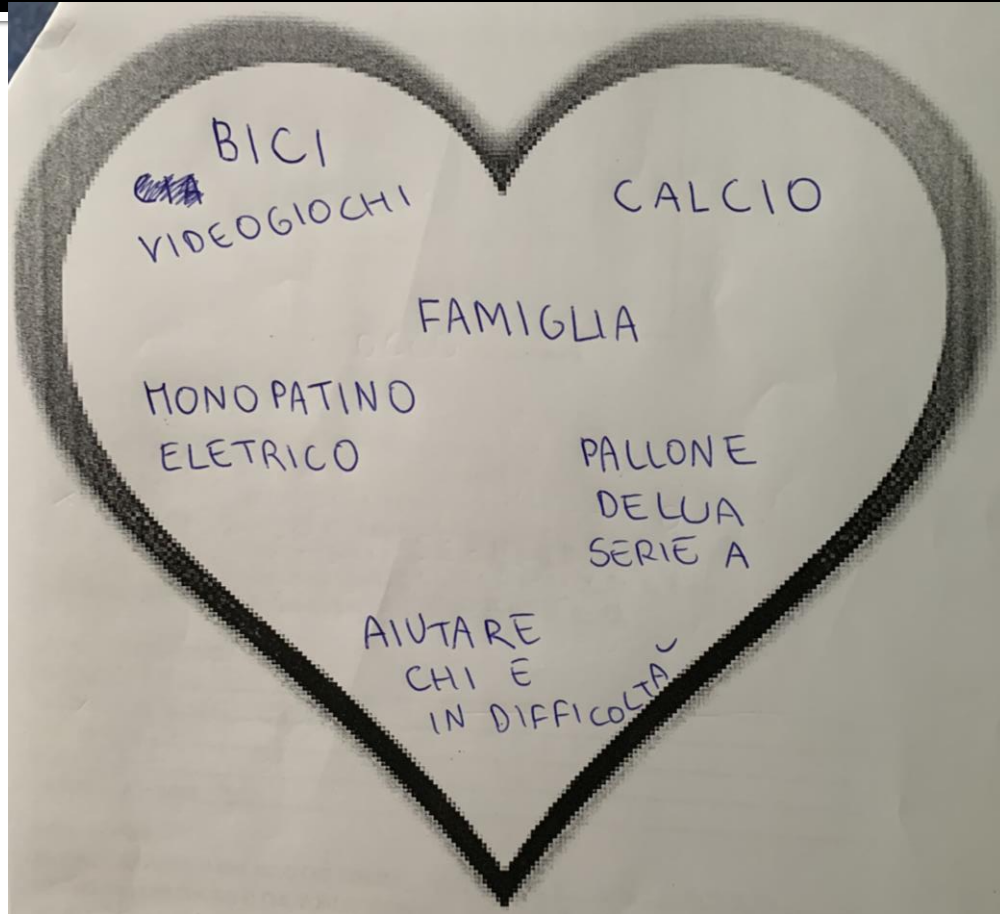 BICI
VIDEOGIOCHI
CALCIO
FAMIGLIA
MONOPATINO
ELETRICO
PALLONE
DELLA
SERIE A
AIUTARE
CHI E
IN DIFFICOLTÀ